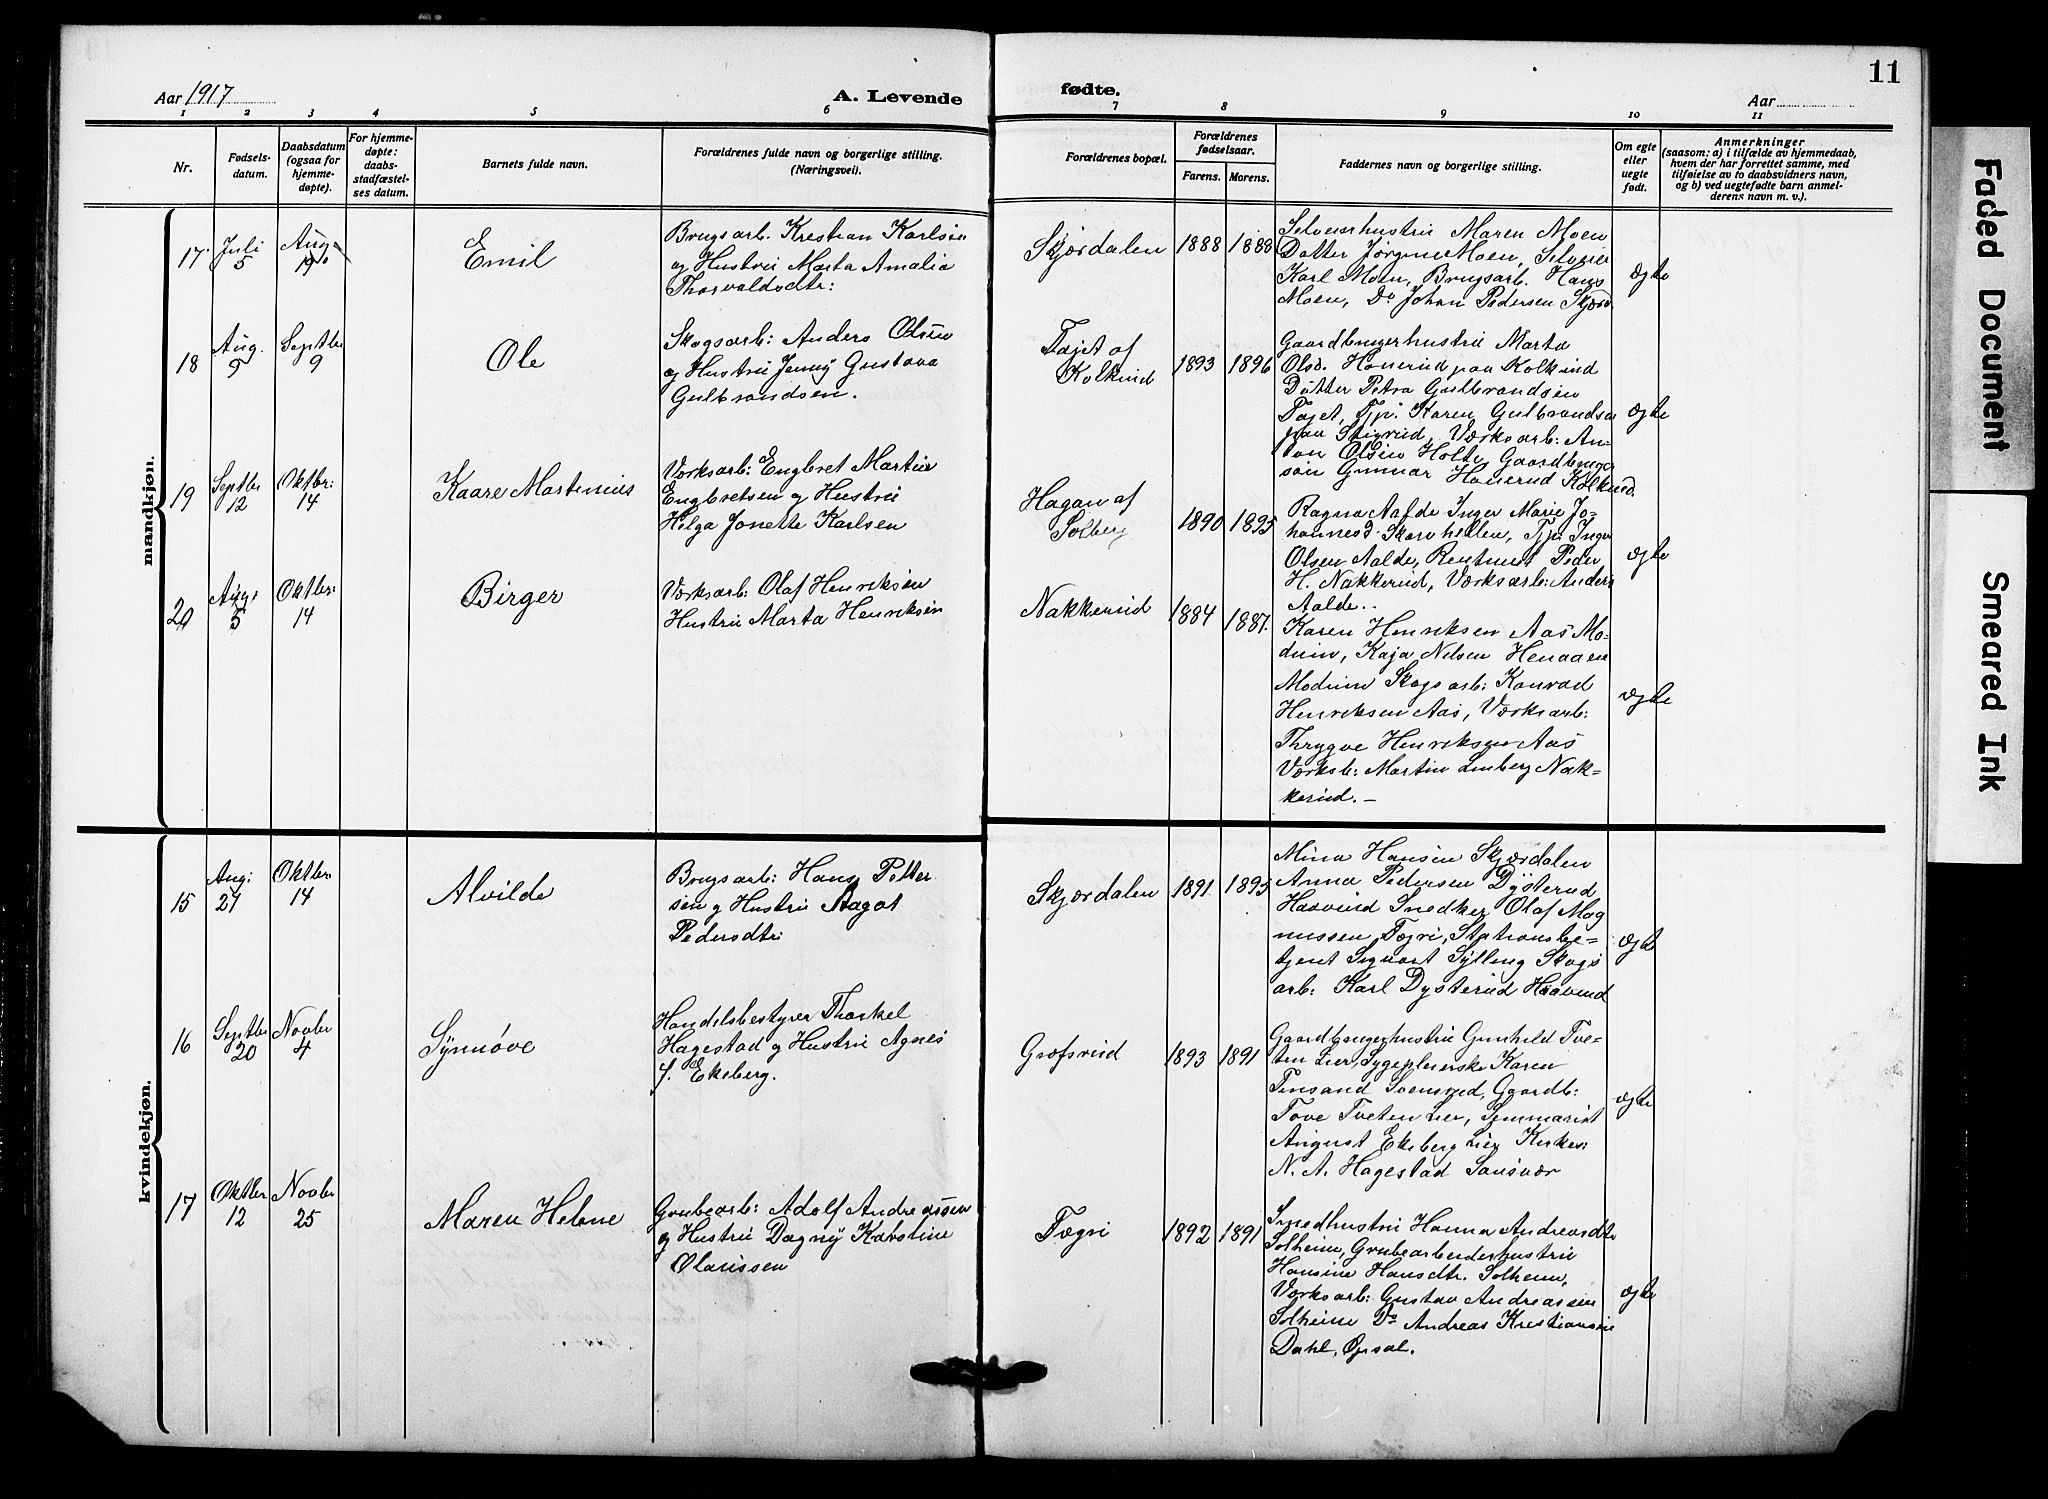 11
Aar 1917
A. Levende
fødte.
Aar
1 2 3 4 5 6 7 8 9 10 11
Nr.
Fødsels-
datum.
Daabsdatum
(ogsaa for
hjemme-
døpte).
For hjemme-
døpte:
daabs-
stadfæstel-
ses datum.
Barnets fulde navn.
Forældrenes fulde navn og borgerlige stilling.
(Næringsvei).
Forældrenes bopæl.
Forældrenes
fødselsaar.
Farens. Morens.
Faddernes navn og borgerlige stilling.
Om egte
eller
uegte
født.
Anmerkninger
(saasom: a) i tilfælde av hjemmedaab,
hvem der har forrettet samme, med
tilføielse av to daabsvidners navn,
og b) ved uegtefødte barn anmel-
derens navn m. v.).
mandkjøn.
17
Juli
5
Aug.
19
Emil
Brugsarb. Krestian Karlsen
og Hustru Marta Amalia
Thorvaldsdtr:
Skjærdalen
1888 1888
Selveierhustru Maren Moen
Datter Jørgine Moen, Selveier
Karl Moen, Brugsarb. Hans
Moen, Do Johan Pedersen Skjærd.
ægte
18
Aug.
9
Septbr
9
Ole
Skogsarb: Anders Olsen
og Hustru Jenny Gustava
Gulbrandsen.
Tajet af
Kolkind
1893 1896
Gaardbrugerhustru Marta
Olsd. Honerud paa Kolkind
Datter Petra Gulbrandsen
Tajet, Tjp. Karen Gulbrandsen
paa Stigrud, Værksarb: An-
ton Olsen Holte, Gaardbruger
søn Gunnar Honerud Kolkind.
ægte
19
Septbr
12
Oktbr:
14
Kaare Martinius
Værksarb: Engbret Martin
Engbretsen og Hustru
Helga Jonette Karlsen
Hagan af
Solberg
1890 1895
Ragna Aalde Inger Marie Jo-
hannesd. Skarvhellen, Tjp. Inga
Olsen Aalde, Peder
H. Nakkerud, Værksarb: Anders
Aalde.
ægte
20
Aug.
5
Oktbr:
14
Birger
Værksarb: Olaf Henriksen
Hustru Marta Henriksen
Nakkerud
1884 1887.
Karen Henriksen Aas Mo-
dum, Kaja Nilsen Henaaen
Modum Skogsarb: Konrad
Henriksen Aas, Værksarb:
Thrygve Henriksen Aas
Værksb: Martin Linberg Nak-
kerud. –
ægte
kvindekjøn.
15
Aug:
27
Oktbr:
14
Alvilde
Brugsarb: Hans Petter
sen og Hustru Aagot
Pedersdtr:
Skjærdalen
1891 1895
Mina Hansen Skjærdalen
Anna Pedersen Dysterud
Haavind Snedker Olaf Mag
nussen Tøgri, Stationsbe-
tjent Sigvart Sylling Skogs
arb: Karl Dysterud Haavind
ægte
16
Septbr
20
Novbr
4
Synnøve
Handelsbestyrer Thorkel
Hagestad og Hustru Agnes
f. Ekeberg.
Græfsrud
1893 1891
Gaardbrugerhustru Gunhild Tve-
ten Lier, Sygepleierske Karen
Tinsand Svensrud, Gaardb:
Tove Tveten Lier, Semmarist
August Ekeberg Lier Kirkes:
N. A. Hagestad Sansvær
ægte
17
Oktbr
12
Novbr
25
Maren Helene
Grubearb: Adolf Andreassen
og Hustru Dagny Karstine
Olaussen
Tøgri
1892 1891
Smedhustru Hanna Andreasdtr
Solheim, Grubearbeiderhustru
Hansine Hansdtr. Solheim,
Værksarb: Gustav Andreassen
Solheim Do Andreas Kristiansen
Dahl, Opsal.
ægte
Faded Document
Smeared Ink